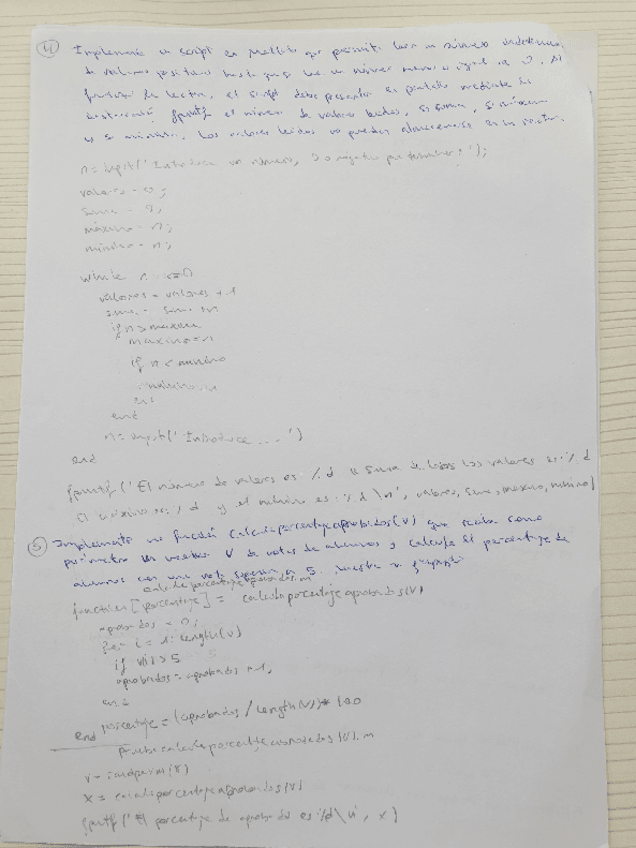 4 Implementa un script en Matlab que permita leer un número indeterminado
de valores positivos hasta que se lea un número menor o igual a 0. Al
finalizar la lectura, el script debe presentar en pantalla mediante la
instrucción fprintf el número de valores leídos, su suma, su máximo
y su mínimo. Los valores leídos no pueden almacenarse en un vector.
n=input('Introduce un número, 0 o negativo para terminar: ');
valores = 0;
suma = 0;
máximo = n;
mínimo = n;
while n
valores = valores + 1
suma = suma + n
if n > maximo
maximo = n
if n < minimo
minimo = n
end
end
n = input('Introduce ... ')
end
fprintf('El número de valores es %d la suma de todos los valores es: %d
El máximo es: %d y el mínimo es: %d \n', valores, suma, maximo, minimo)
5 Implementa una función calculaporcentajeaprobados(v) que reciba como
parámetro un vector V de notas de alumnos y calcule el porcentaje de
alumnos con una nota superior a 5. Muestra
calculaporcentajeaprobados.m
function [porcentaje] = calculaporcentajeaprobados(v)
aprobados = 0;
for i = 1:length(v)
if v(i) > 5
aprobados = aprobados + 1;
end
porcentaje = (aprobados / length(v)) * 100
end
Pruebacalculaporcentajeaprobados(v).m
v = randperm(8)
x = calculaporcentajeaprobados(v)
fprintf('El porcentaje de aprobados es %d\n', x)